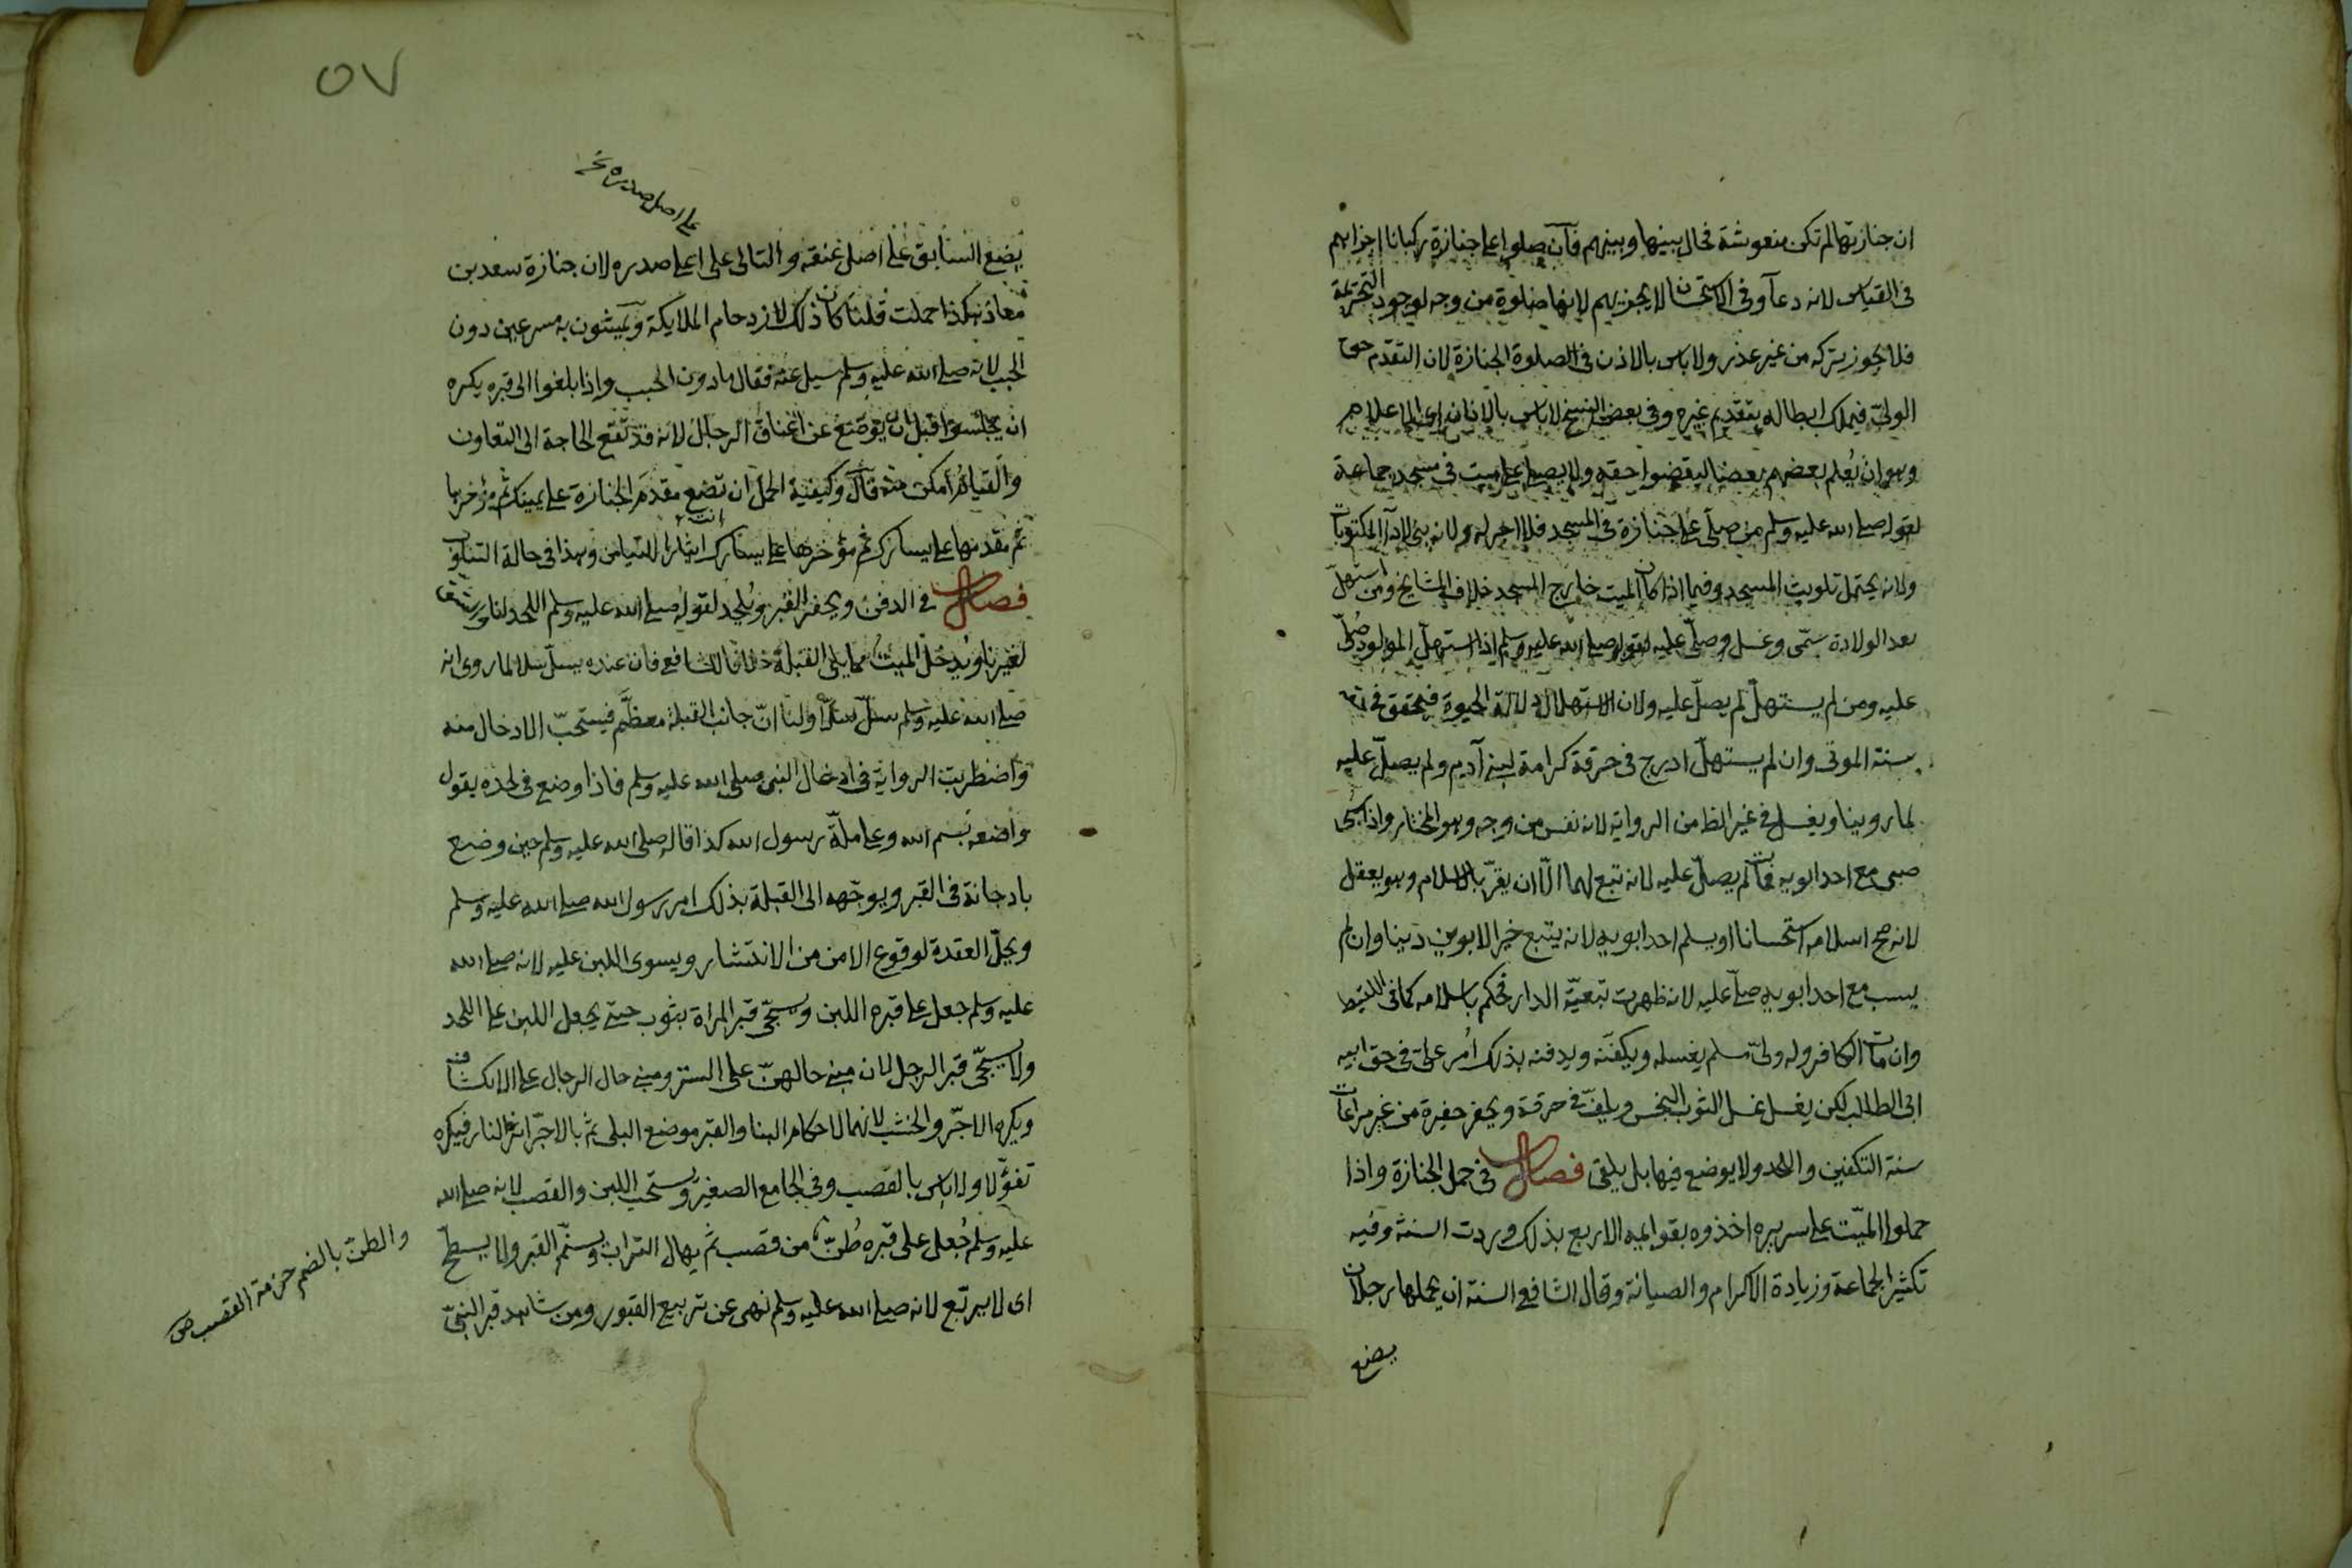 ان جنازتها لم تكن منعوشة فحال بينها وبينهم فان صلوا على جنازة ركبانا اجزاهم
فى القياس لانه دعآ وفى الاستحسان لا يجزيهم لانها صلوة من وجه لوجود التحريمة
فلا يجوز تركه من غير عذر ولا باس بالاذن فى الصلوة الجنازة لان التقدم حق
الولىّ فيملك ابطاله بتقديم غيره وفى بعض النسخ لا باس بالاذان اى الاعلام
وهو ان يُعلم بعضهم بعضا ليقضوا حقه ولا يصلى على ميت فى مسجد جماعة
لقوله صلى الله عليه وسلم من صلّى على جنازة فى المسجد فلا اجر له ولانه بنى لادآ المكتوبات
ولانه يحتمل تلويث المسجد وفيما اذا كان الميت خارج المسجد خلاف المشايخ ومن استهلّ
بعد الولادة سمّى وغسل وصلّى عليه لقوله صلى الله عليه وسلم اذا استهلّ المولود صُلّى
عليه ومن لم يستهلّ لم يصلّ عليه ولان الاستهلال دلالة الحيوة فيتحقق فى حقه
سنة الموتى وان لم يستهلّ ادرج فى خرقة كرامة لبنى آدم ولم يصلّ عليه
لما روينا ويغسل فى غير الظ من الرواية لانه نفس من وجه وهو المختار واذا سُبى
صبى مع احد ابويه فمات لم يصلّ عليه لانه تبع لهما الّا ان يقرّ بالاسلام وهو يعقل
لانه صح اسلامه استحسانا او يسلم احد ابويه لانه يتبع خير الابوين دينا وان لم
يسب مع احد ابويه صلّى عليه لانه ظهرت تبعيّة الدار فحكم باسلامه كما فى اللقيط
وان مات الكافر وله ولىّ مسلم يغسله ويكفّنه ويدفنه بذلك اُمر علىّ فى حق ابيه
ابى الطالب لكن يغسل غسل الثوب النجس ويلفّ فى خرقة ويحفر حفيرة من غير مراعات
سنة التكفين واللحد ولا يوضع فيها بل يلقى فصل فى حمل الجنازة واذا
حملوا الميّت على سريره اخذوه بقوايمه الاربع بذلك وردت السنة وفيه
تكثير الجماعة وزيادة الاكرام والصيانة وقال الشافعى السنة ان يحملها رجلان
يضع
٥٧
على اصل صدره نخ
يضع السابق على اصل عنقه والتالى على اعلى صدره لان جنازة سعد بن
معاذ هكذا حملت قلنا كان ذلك لازدحام الملايكة ويمشون به مسرعين دون
الخبب لانه صلى الله عليه وسلم سيل عنه فقال ما دون الخبب واذا بلغوا الى قبره يكره
ان يجلسوا قبل ان يوضع عن اعناق الرجال لانه قد تقع الحاجة الى التعاون
والقيام امكن منه قال وكيفية الحمل ان تضع مقدم الجنازة على يمينك ثم مؤخرها
ثم مقدمها على يسارك ثم مؤخرها على يسارك ايثارا للتيامن وهذا فى حالة التناوب
فصل فى الدفن ويحفر القبر ويُلحد لقوله صلى الله عليه وسلم اللحد لنا والشق
لغيرنا ويُدخل الميت مما يلى القبلة خلافا للشافعى فان عنده يسلّ سلا لما روى انه
صلى الله عليه وسلم سلّ سلّا ولنا انّ جانب القبلة معظّم فيستحبّ الادخال منه
واضطربت الرواية فى ادخال النبى صلى الله عليه وسلم فاذا وضع فى لحده يقول
واضعه بسم الله وعلى ملّة رسول الله كذا قاله صلى الله عليه وسلم حين وضع
ابا دجانة فى القبر ويوجّهه الى القبلة بذلك امر رسول الله صلى الله عليه وسلم
ويحلّ العقدة لوقوع الامن من الانتشار ويسوى اللبن عليه لانه صلى الله
عليه وسلم جعل على قبره اللبن ويسجّى قبر المراة بثوب حتى يجعل اللبن على اللحد
ولا يسجّى قبر الرجل لان مبنى حالهنّ على الستر ومبنى حال الرجال على الانكشاف
ويكره الاجرّ والخشب لانهما لاحكام البنا والقبر موضع البلى ثم بالاجرّ اثر النار فيكره
تفؤّلا ولا باس بالقصب وفى الجامع الصغير ويستحب اللبن والقصب لانه صلى الله
عليه وسلم جُعل على قبره طُنّ من قصب ثم يهال التراب ويسنّم القبر ولا يسطّح
اى لا يربّع لانه صلى الله عليه وسلم نهى عن تربيع القبور ومن شاهد قبر النبىّ
والطنّ بالضم حزمة القصب ص